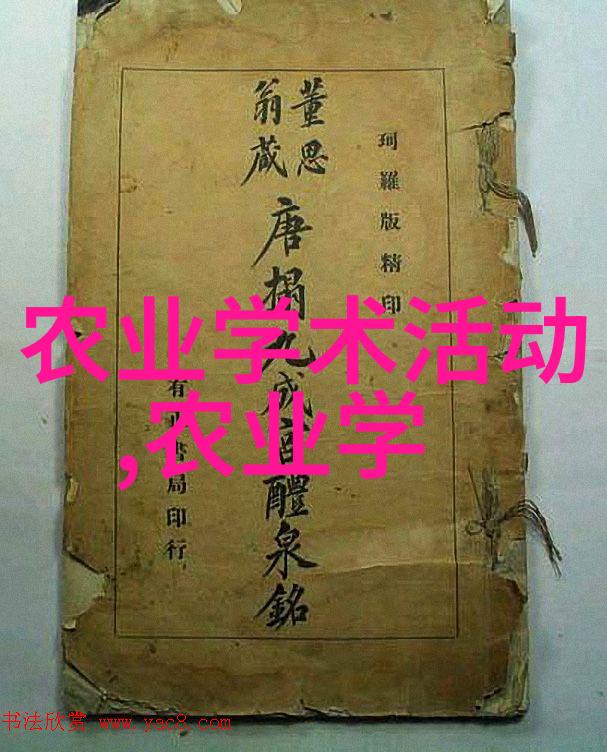 珂羅版精印
董思
翁藏
唐搨九成宮醴泉銘
有書局印行
农业学术活动
,农业学
书法欣赏 www.yac8.com